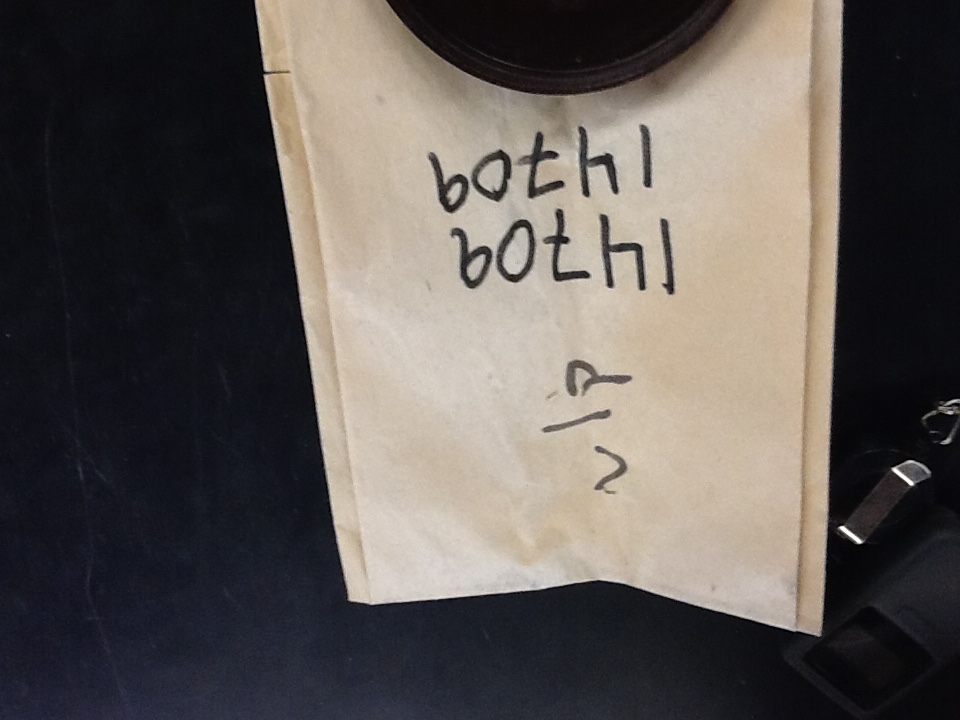 14709
14709